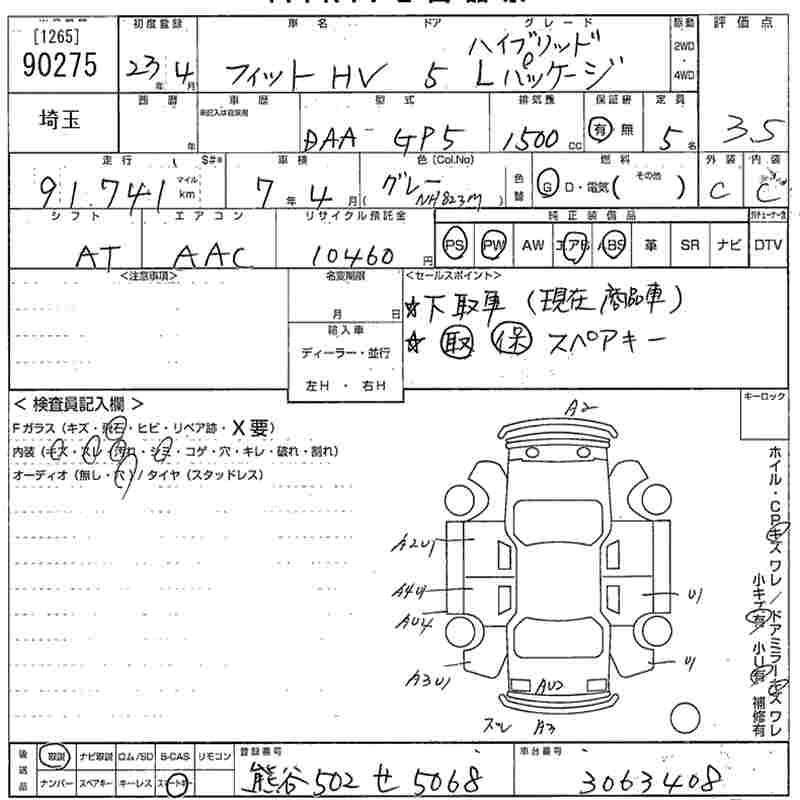 [1265]
90275
初度登録 車名 ドア グレード 駆動 評価点
23年 4月 フィット HV 5 ハイブリッド Lパッケージ 2WD ・ 4WD
3.5
埼玉
西暦 車歴 型式 排気量 保証書 定員
年 未記入は自家用 DAA-GP5 1500 cc 有・無 5名
走行 S#* 車検 色(Col.No) 色替 燃料 外装 内装
91.741 マイル km 7年 4月 (グレー NH823M) G D・電気(その他) C C
シフト エアコン リサイクル預託金 純正装備品
AT AAC 10460円 PS PW AW エアB ABS 革 SR ナビ DTV
<注意事項> 名変期限 <セールスポイント>
月 日
☆下取車 (現在 商品車)
☆ 取 保 スペアキー
輸入車
ディーラー・並行
左H ・ 右H
< 検査員記入欄 >
Fガラス (キズ・飛石・ヒビ・リペア跡・X要)
内装 (キズ・スレ・汚れ・シミ・コゲ・穴・キレ・破れ・割れ)
オーディオ (無し・穴) / タイヤ (スタッドレス)
キーロック
A2
A2U1
A4U1
AU4
A3U1
U1
U1
AU2
スレ A3
ホイル・CPキズ ワレ / ドアミラーキズ ワレ
小キズ有 小U有 補修有
後送品
取説 ナビ取説 ロム/SD B-CAS リモコン
ナンバー スペアキー キーレス スマートキー
登録番号 車台番号
熊谷 502 せ 5068 3063408